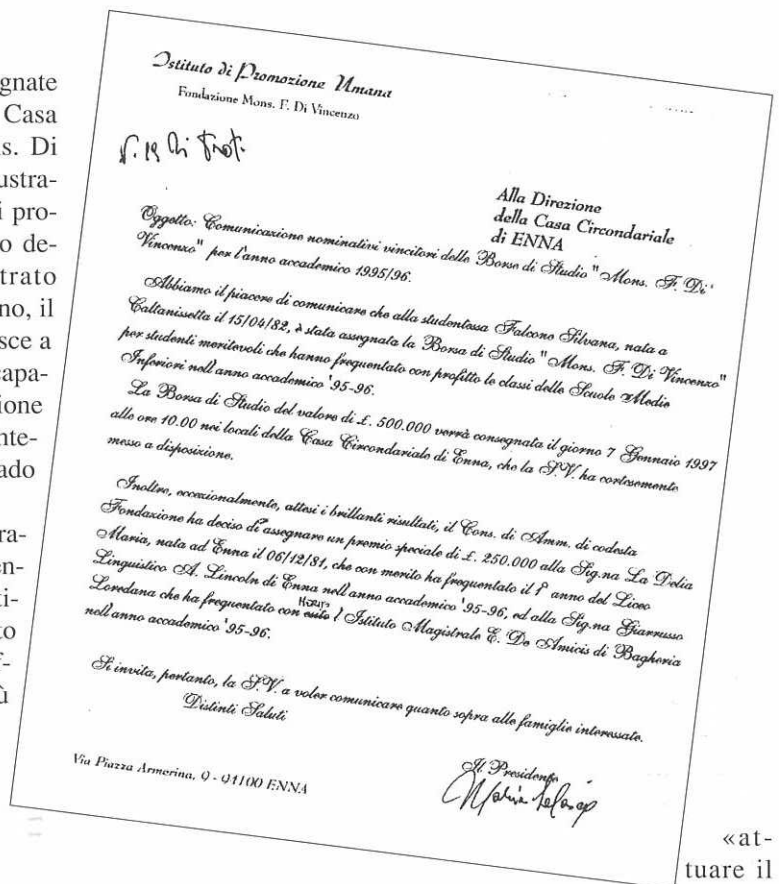 gnate
Casa
s. Di
ustra-
i pro-
o de-
trato
no, il
sce a
capa-
ione
nte-
ado
ra-
en-
ti-
to
f-
ù
Istituto di Promozione Umana
Fondazione Mons. F. Di Vincenzo
N. 19 di Prot.
Alla Direzione
della Casa Circondariale
di ENNA
Oggetto: Comunicazione nominativi vincitori delle Borse di Studio "Mons. F. Di
Vincenzo" per l'anno accademico 1995/96.
Abbiamo il piacere di comunicare che alla studentessa Falcone Silvana, nata a
Caltanissetta il 15/04/82, è stata assegnata la Borsa di Studio "Mons. F. Di Vincenzo"
per studenti meritevoli che hanno frequentato con profitto le classi delle Scuole Medie
Inferiori nell'anno accademico '95-96.
La Borsa di Studio del valore di £. 500.000 verrà consegnata il giorno 7 Gennaio 1997
alle ore 10.00 nei locali della Casa Circondariale di Enna, che la S.V. ha cortesemente
messo a disposizione.
Inoltre, eccezionalmente, attesi i brillanti risultati, il Cons. di Amm. di codesta
Fondazione ha deciso di assegnare un premio speciale di £. 250.000 alla Sig.na La Delia
Maria, nata ad Enna il 06/12/81, che con merito ha frequentato il 1° anno del Liceo
Linguistico A. Lincoln di Enna nell'anno accademico '95-96, ed alla Sig.na Giarrusso
Loredana che ha frequentato con esito MERITO l'Istituto Magistrale E. De Amicis di Bagheria
nell'anno accademico '95-96.
Si invita, pertanto, la S.V. a voler comunicare quanto sopra alle famiglie interessate.
Distinti Saluti
Il Presidente
Via Piazza Armerina, 9 - 94100 ENNA
«at-
tuare il